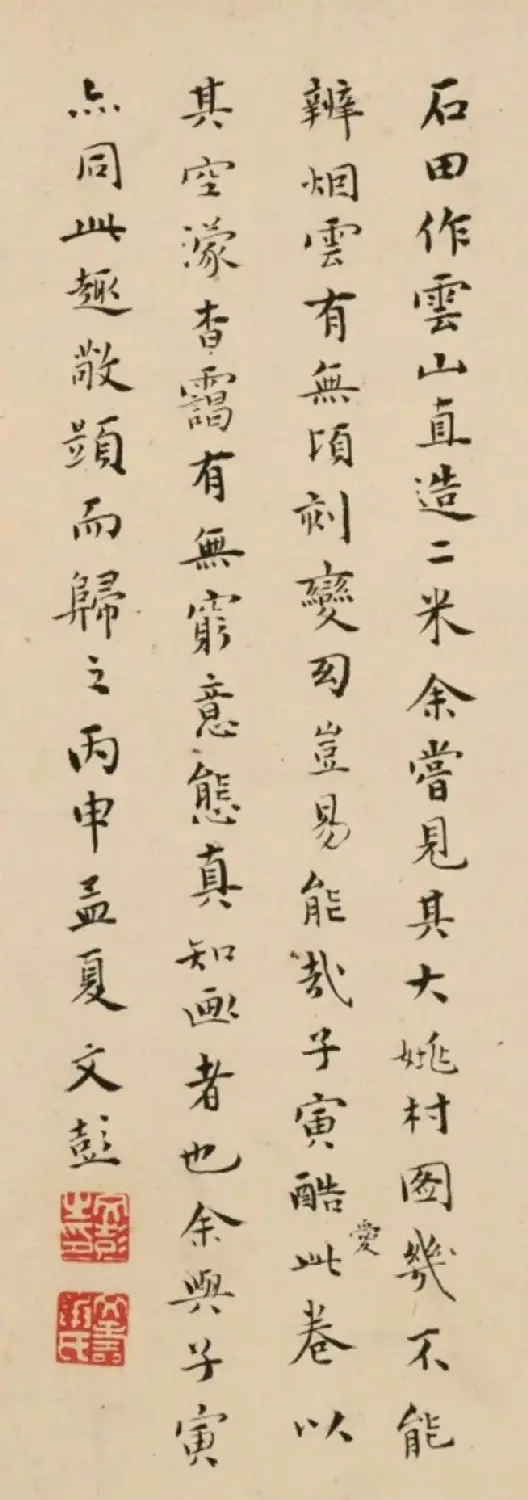 石田作雲山直造二米余嘗見其大姚村图幾不能
辨烟雲有無頃刻變幻豈易能哉子寅酷愛此卷以
其空濛杳靄有無窮意態真知画者也余與子寅
亦同此趣敬題而歸之丙申孟夏文彭
文彭之印
文壽承氏